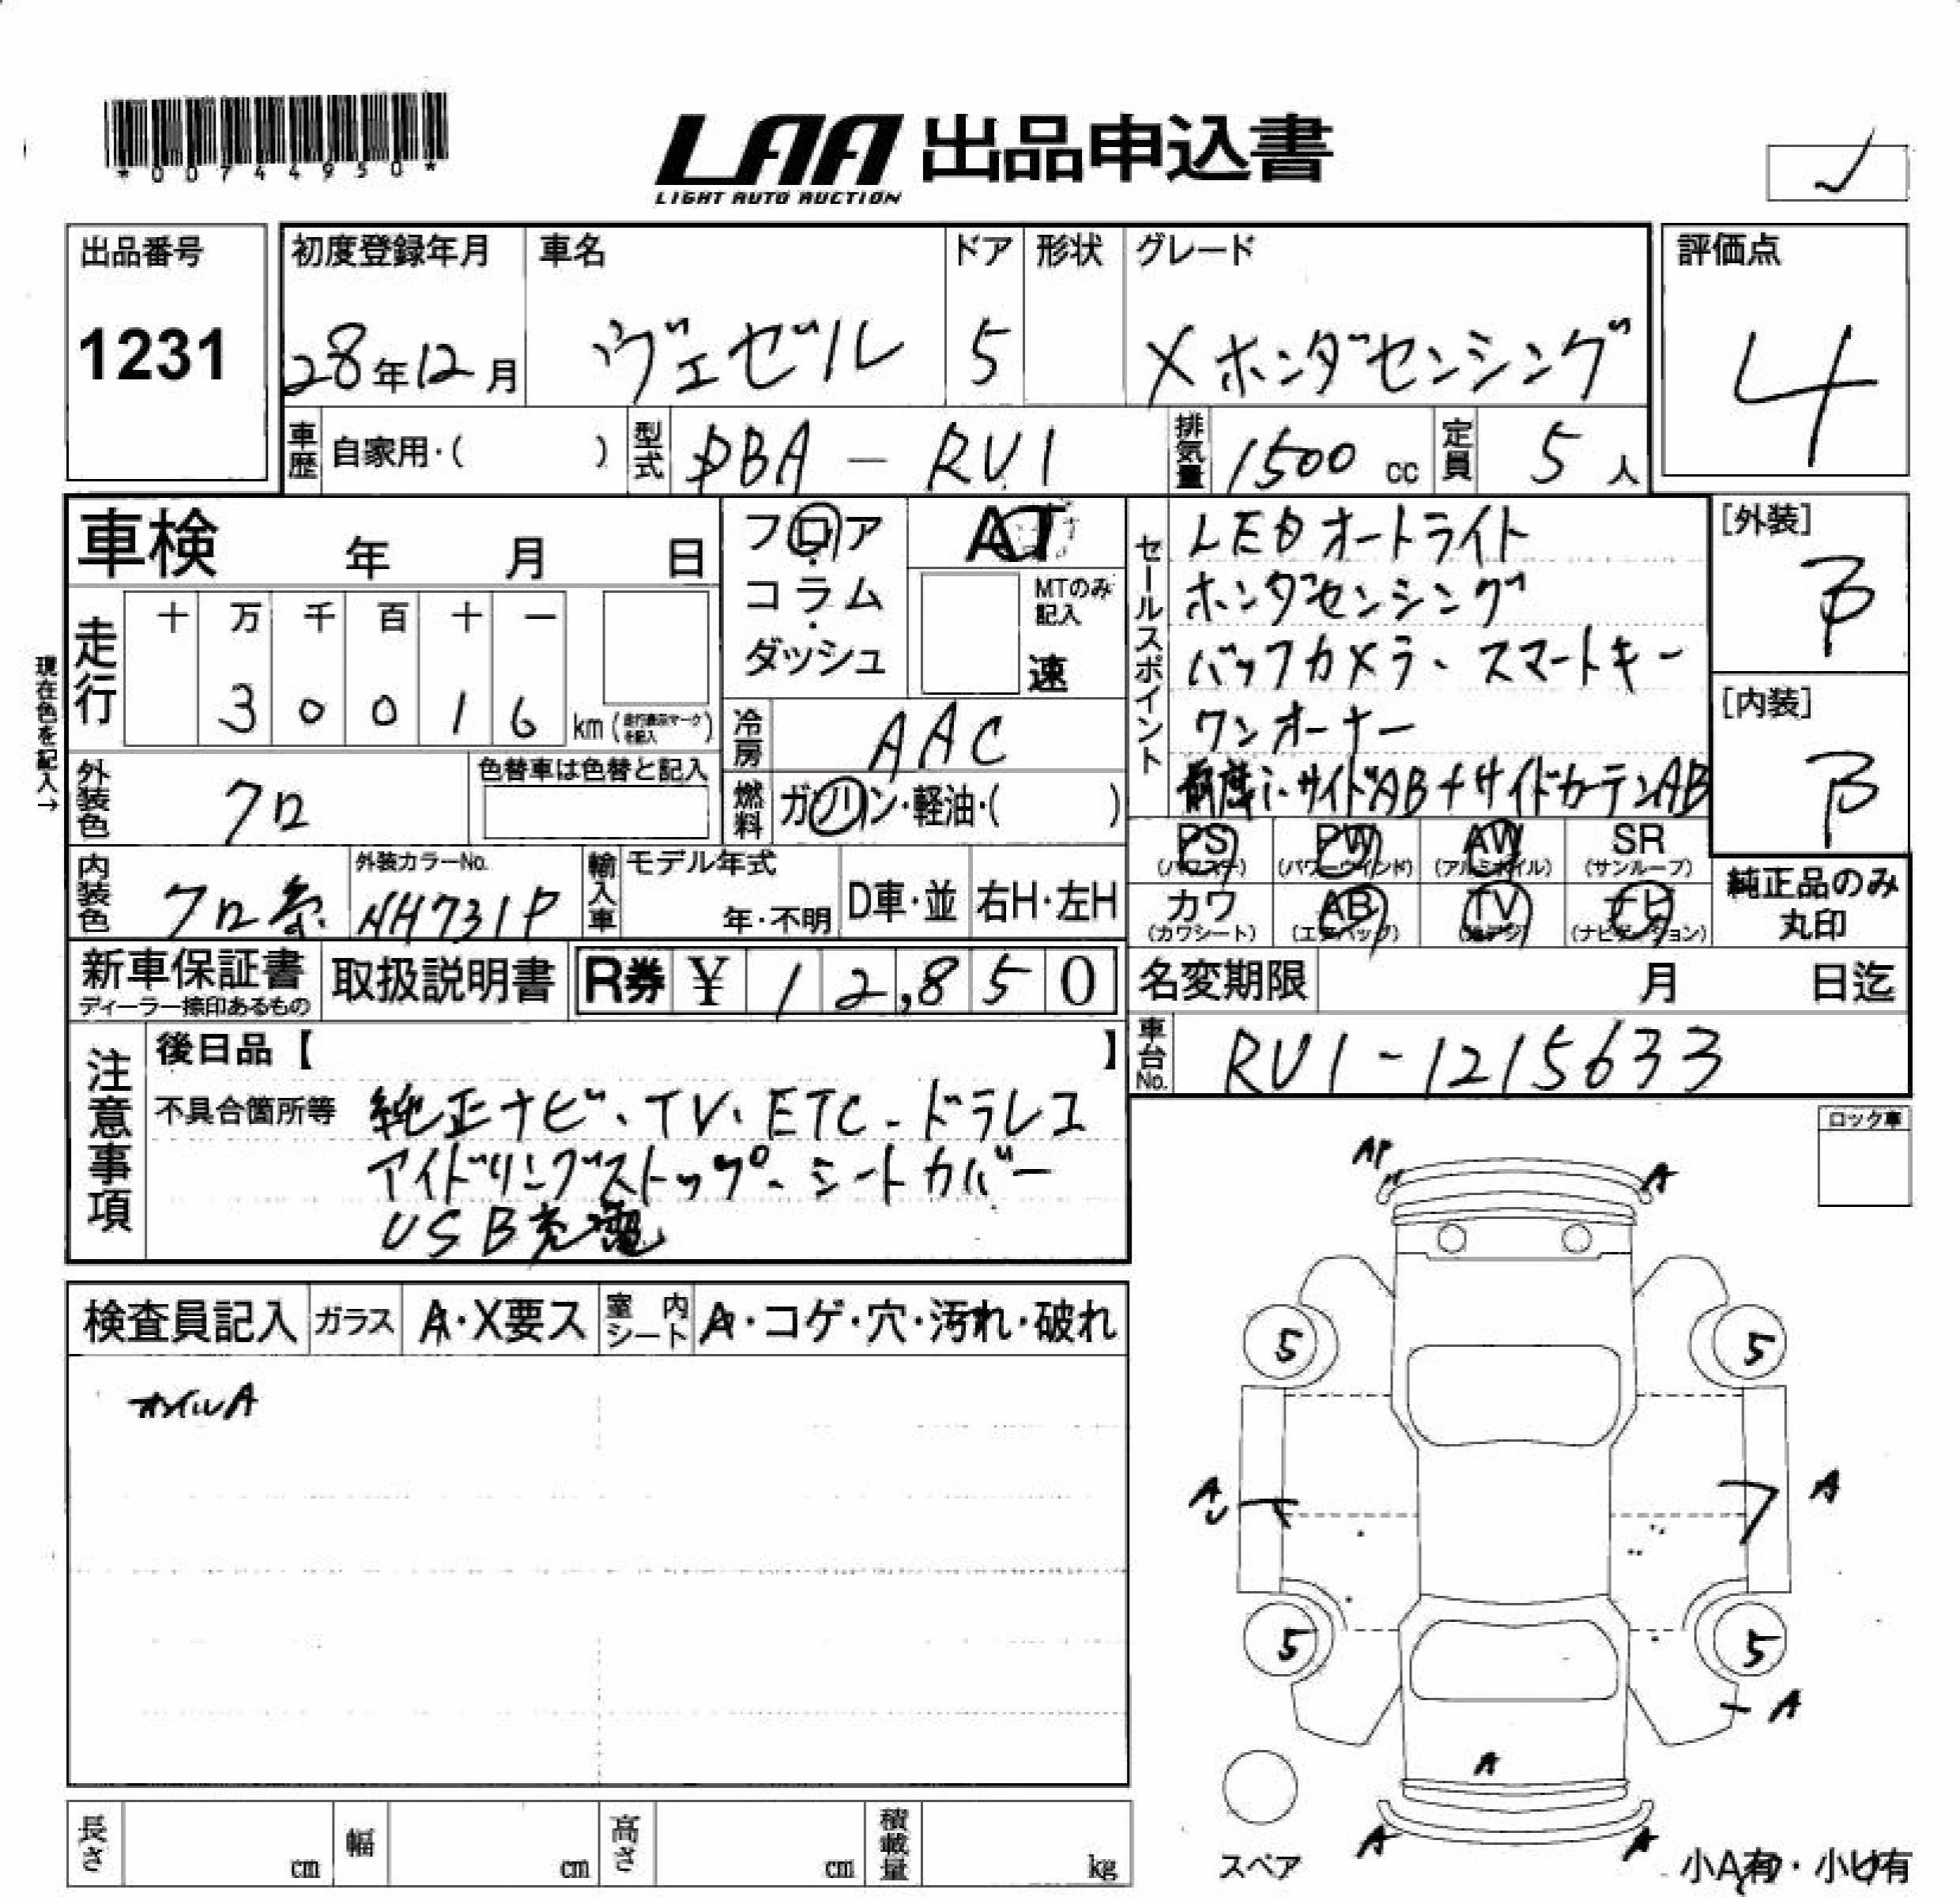 *00744950*
LAA 出品申込書
LIGHT AUTO AUCTION
出品番号
1231
初度登録年月
28年12月
車名
ヴェゼル
ドア
5
形状
グレード
X ホンダセンシング
評価点
4
車歴 自家用・( )
型式 DBA - RU1
排気量 1500 cc
定員 5 人
車検 年 月 日
走行 十 万 千 百 十 一
3 0 0 1 6 km (走行表示マークを記入)
現在色を記入→
フロア
コラム
ダッシュ
AT
MTのみ記入
速
冷房 AAC
燃料 ガソリン・軽油・( )
セールスポイント
LEDオートライト
ホンダセンシング
バックカメラ、スマートキー
ワンオーナー
サイドAB+サイドカーテンAB
[外装]
B
[内装]
B
外装色 クロ
色替車は色替と記入
内装色 クロ系
外装カラーNo.
NH731P
輸入車
モデル年式
年・不明
D車・並
右H・左H
PS (パワステ)
PW (パワーウインド)
AW (アルミホイル)
SR (サンルーフ)
カワ (カワシート)
AB (エアバック)
TV (地デジ)
ナビ (ナビゲーション)
純正品のみ
丸印
新車保証書
ディーラー捺印あるもの
取扱説明書
R券 ¥ 12,850
名変期限 月 日迄
車台No. RU1-1215633
注意事項
後日品【 】
不具合箇所等 純正ナビ、TV、ETC、ドラレコ
アイドリングストップ、シートカバー
USB充電
ロック車
検査員記入
ガラス
A・X要ス
室内シート
A・コゲ・穴・汚れ・破れ
オイルA
AP
A
5
5
A
U
A
5
5
A
A
A
A
スペア
小A有・小U有
長さ cm
幅 cm
高さ cm
積載量 kg